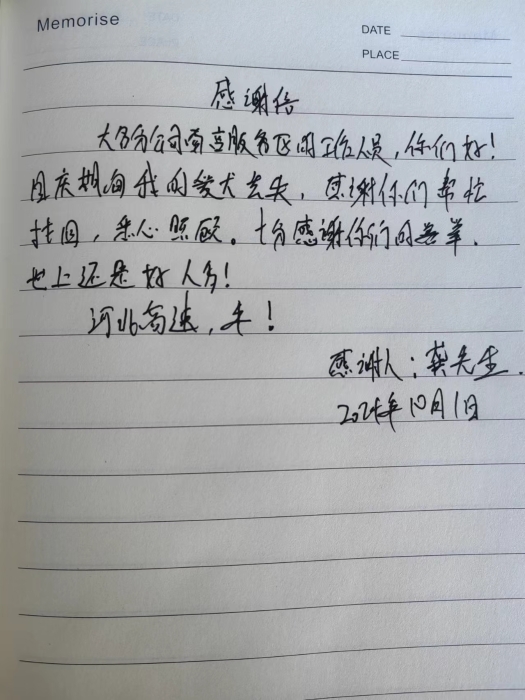 Memorise
DATE
PLACE
感谢信
大名分公司南宫服务区的工作人员，你们好！
国庆期间我的爱犬丢失，感谢你们帮忙
找回，悉心照顾。十分感谢你们的善举.
世上还是好人多！
河北高速，牛！
感谢人：龚先生.
2024年10月1日